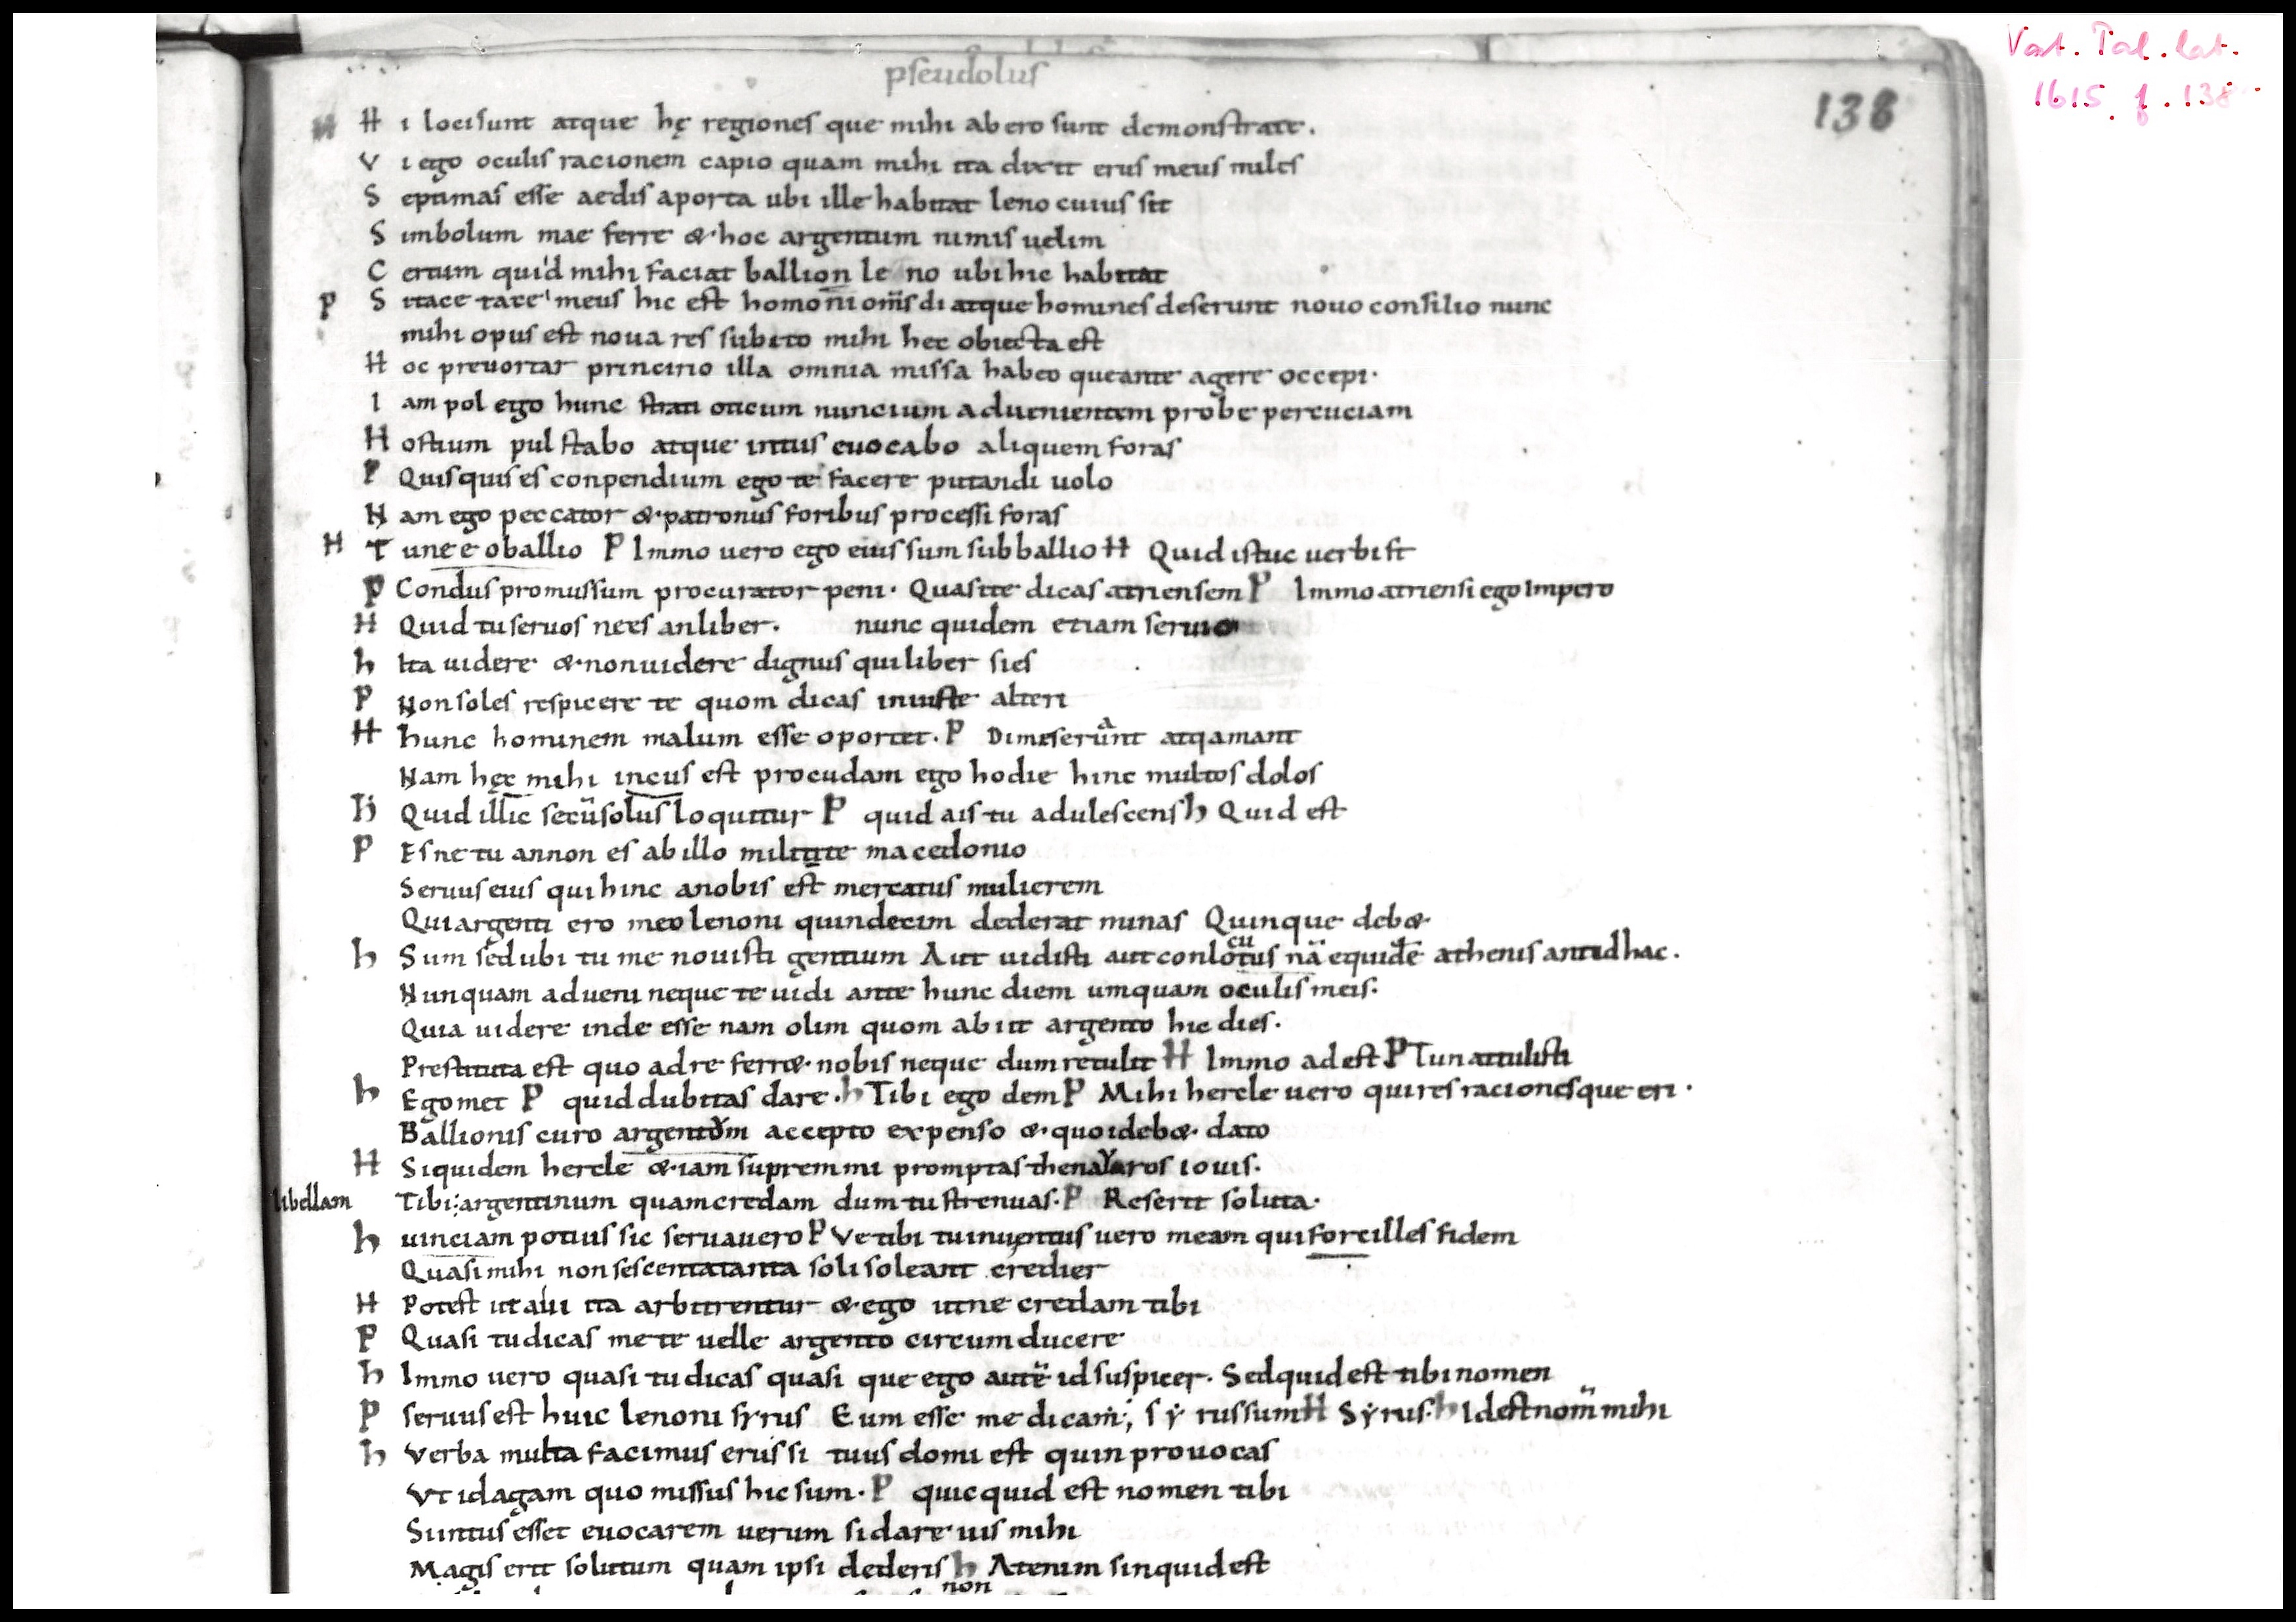 pseudolus
138
Vat. Pal. lat.
1615 f. 138
H H i locisunt atque hę regiones que mihi abero sunt demonstrate.
V i ego oculis racionem capio quam mihi ita dixit erus meus miles
S eptimas esse aedis aporta ubi ille habitat leno cuius sit
S imbolum mae ferre & hoc argentum nimis uelim
C ertum quid mihi faciat ballion le no ubi hic habitat
P S itace tace meus hic est homo ni om̄s di atque homines deserunt nouo consilio nunc
mihi opus est noua res subito mihi hec obiecta est
H oc preuortar principio illa omnia missa habeo queante agere occepi.
I am pol ego hunc strati oticum nuncium aduenientem probe percuciam
H ostium pul stabo atque intus euocabo aliquem foras
P Quisquis es conpendium ego te facere putandi uolo
N am ego peccator & patronus foribus processi foras
H T une e oballio P Immo uero ego eius sum subballio H Quid istuc uerbi st
P Condus promussum procurator peni. Quasite dicas atriensem P Immo atriensi ego Impero
H Quid tu seruos ne es anliber. nunc quidem etiam seruio
h Ita uidere & nonuidere dignus qui liber sies
P Non soles respicere te quom dicas iniuste alteri
H hunc hominem malum esse oportet. P Dimeserunt atq amant
Nam hęc mihi incus est procudam ego hodie hinc multos dolos
H Quid illic secū solus loquitur P quid ais tu adulescens h Quid est
P Esne tu annon es ab illo militite macedonio
Seruus eius qui hinc anobis est mercatus mulierem
Qui argenti ero meo lenoni quindecim dederat minas Quinque deb&
h Sum sed ubi tu me nouisti gentium Aut uidisti aut conlocutus nā equidē athenis antidhac.
Nunquam adueni neque te uidi ante hunc diem umquam oculis meis.
Quia uidere inde esse nam olim quom abiit argento hic dies.
Prestituta est quo adre ferr& nobis neque dum retulit H Immo adest P Tun attulisti
h Egomet P quid dubitas dare. h Tibi ego dem P Mihi hercle uero qui res racionesque eri.
Ballionis curo argentom accepto expenso & quoi deb& dato
H Siquidem hercle & iam supremmi promptas thenaYaros iouis.
libellam Tibi: argentinum quamcredam dum tu strenuas. P Resertt soluta.
h uinciam potius sic seruauero P Ve tibi tu inuentus uero meam qui forcilles fidem
Quasi mihi non sescentatanta soli soleant credier
H Potest ut alii ita arbitrentur & ego utne credam tibi
P Quasi tu dicas me te uelle argento circumducere
h Immo uero quasi tu dicas quasi que ego autē id suspicer. Sed quid est tibi nomen
P seruus est huic lenoni syrus Eum esse me dicam; sy russum H Syrus. h Id est nom̄ mihi
h Verba multa facimus erus si tuus domi est quin prouocas
Vt id agam quo missus hic sum. P quicquid est nomen tibi
Si intus esset euocarem uerum si dare uis mihi
Magis erit solutum quam ipsi dederis h Atenim sinquid est
non